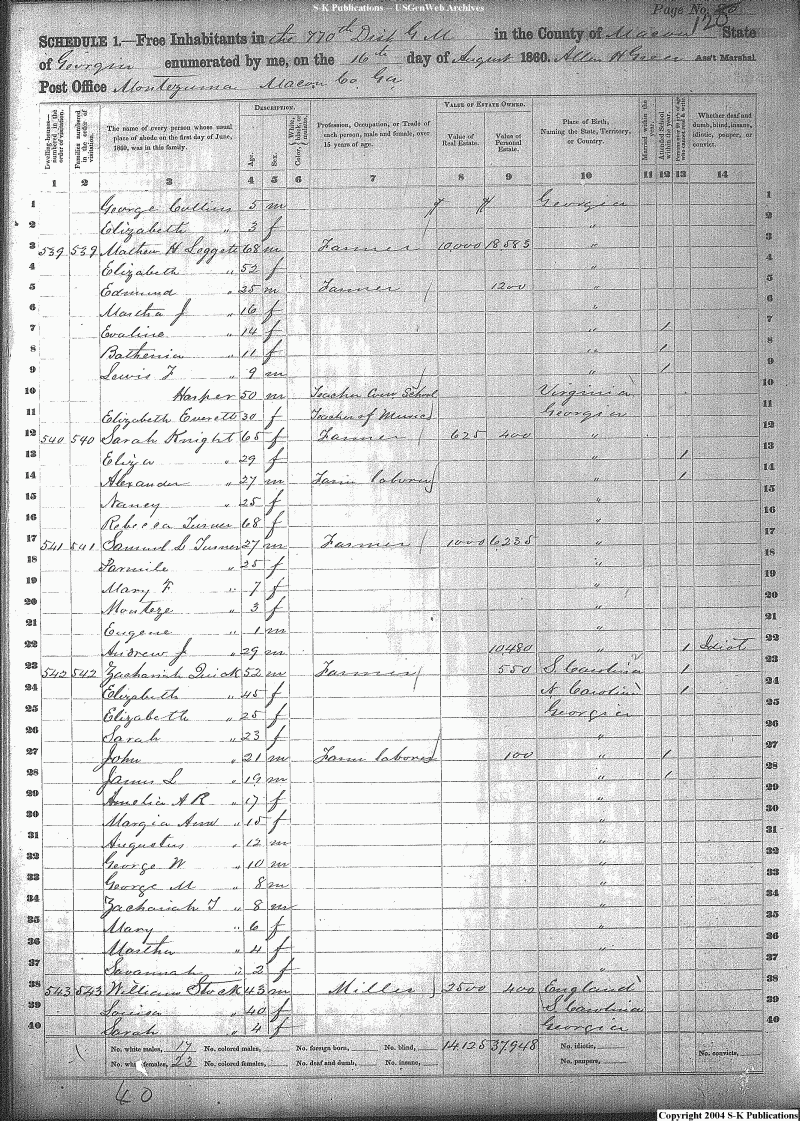 S-K Publications -- USGenWeb Archives
Page No. 80
120
SCHEDULE 1.—Free Inhabitants in the 770th Dist G M in the County of Macon State
of Georgia enumerated by me, on the 16th day of August 1860. Allen H Greer Ass't Marshal
Post Office Montezuma Macon Co. Ga
Dwelling-houses—numbered in the order of visitation.
Families numbered in the order of visitation.
The name of every person whose usual place of abode on the first day of June, 1860, was in this family.
DESCRIPTION.
Age.
Sex.
Color, White, black, or mulatto.
Profession, Occupation, or Trade of each person, male and female, over 15 years of age.
VALUE OF ESTATE OWNED.
Value of Real Estate.
Value of Personal Estate.
Place of Birth, Naming the State, Territory, or Country.
Married within the year.
Attended School within the year.
Whether deaf and dumb, blind, insane, idiotic, pauper, or convict.
1 2 3 4 5 6 7 8 9 10 11 12 13 14
1 George Collins 5 m Georgia 1
2 Elizabeth " 3 f " 2
3 539 539 Mathew H Leggett 68 m Farmer 10,000 18,583 " 3
4 Elizabeth " 52 f " 4
5 Edmund " 25 m Farmer 1200 " 5
6 Martha J " 16 f " 6
7 Evaline " 14 f " 1 7
8 Bathenia " 11 f " 1 8
9 Lewis F " 9 m " 1 9
10 Harper 50 m Teacher Com School Virginia 10
11 Elizabeth Everett 30 f Teacher of Music Georgia 11
12 540 540 Sarah Knight 65 f Farmer 625 400 " 12
13 Eliza " 29 f " 1 13
14 Alexander " 27 m Farm laborer " 1 14
15 Nancy " 25 f " 15
16 Rebecca Turner 68 f " 16
17 541 541 Samuel L Turner 27 m Farmer 1000 6235 " 17
18 " 25 f " 18
19 Mary F " 7 f " 19
20 Monteze " 3 f " 20
21 Eugene " 1 m " 21
22 Andrew J " 29 m 10480 " 1 Idiot 22
23 542 542 Zachariah Quick 52 m Farmer 550 S. Carolina 1 23
24 Elizabeth " 45 f N. Carolina 1 24
25 Elizabeth " 25 f Georgia 25
26 Sarah " 23 f " 26
27 John " 21 m Farm laborer 100 " 1 27
28 James L " 19 m " 1 28
29 Amelia A R " 17 f " 29
30 Margia Ann " 15 f " 30
31 Augustus " 12 m " 31
32 George W " 10 m " 32
33 George M " 8 m " 33
34 Zachariah T " 8 m " 34
35 Mary " 6 f " 35
36 Martha " 4 f " 36
37 Savannah " 2 f " 37
38 543 543 William Stuck 43 m Miller 2500 400 England 38
39 Louisa " 40 f S Carolina 39
40 Sarah " 4 f Georgia 40
No. white males, 17 No. colored males, No. foreign born, No. blind, 14,125 37,948 No. idiotic,
No. white females, 23 No. colored females, No. deaf and dumb, No. insane, No. paupers, No. convicts,
40
Copyright 2004 S-K Publications